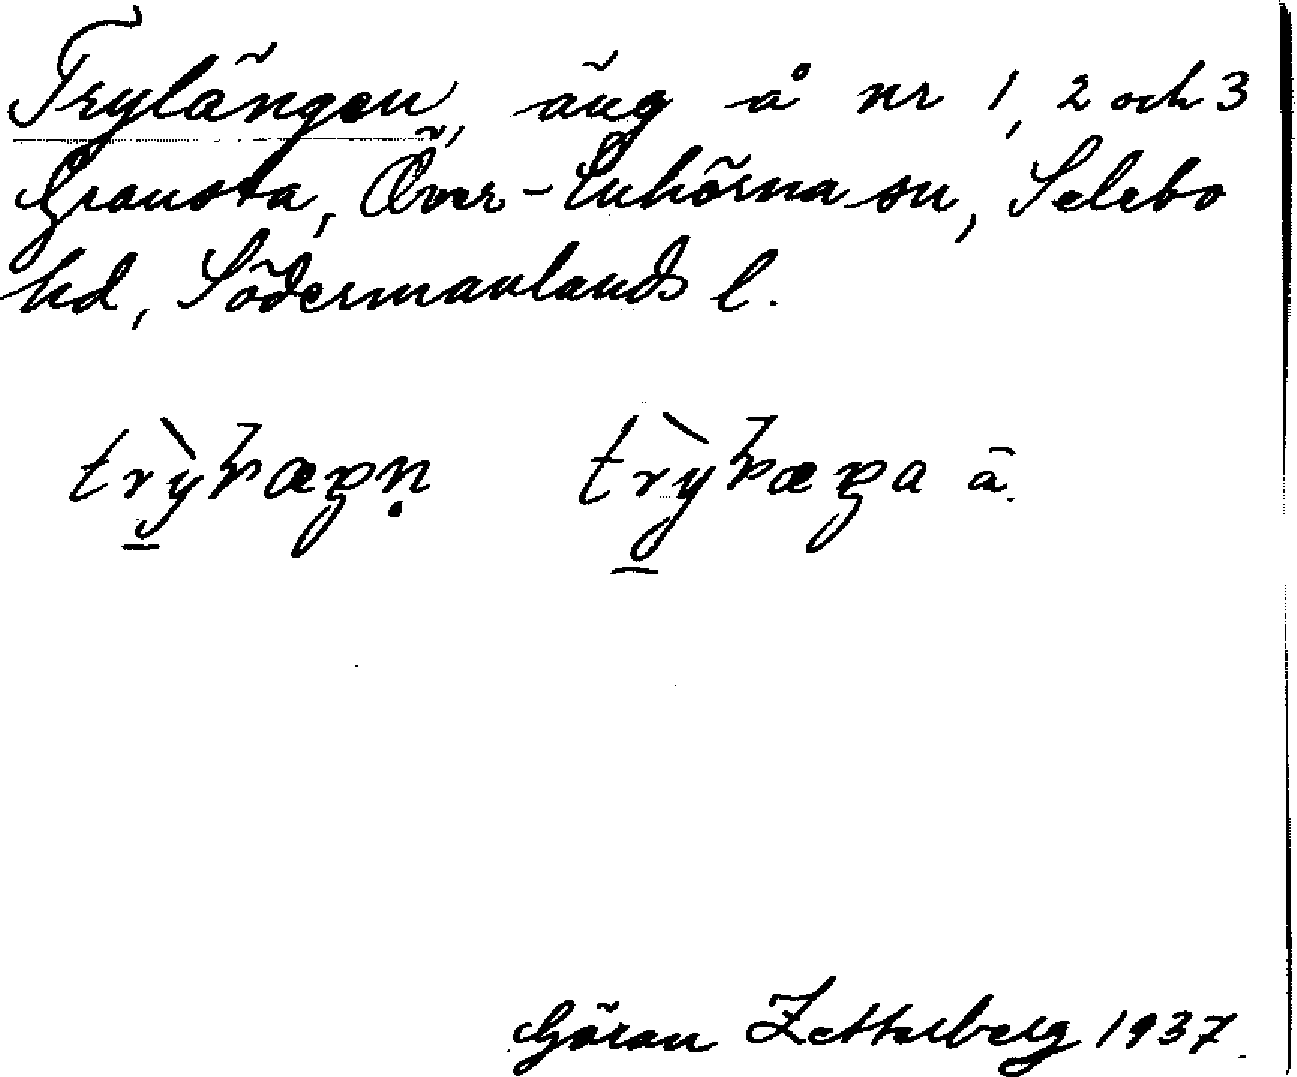 Trylängen, äng å nr 1, 2 och 3
Gransta, Över-Enhörna sn, Selebo
hd, Södermanlands l.
Göran Zetterberg 1937.